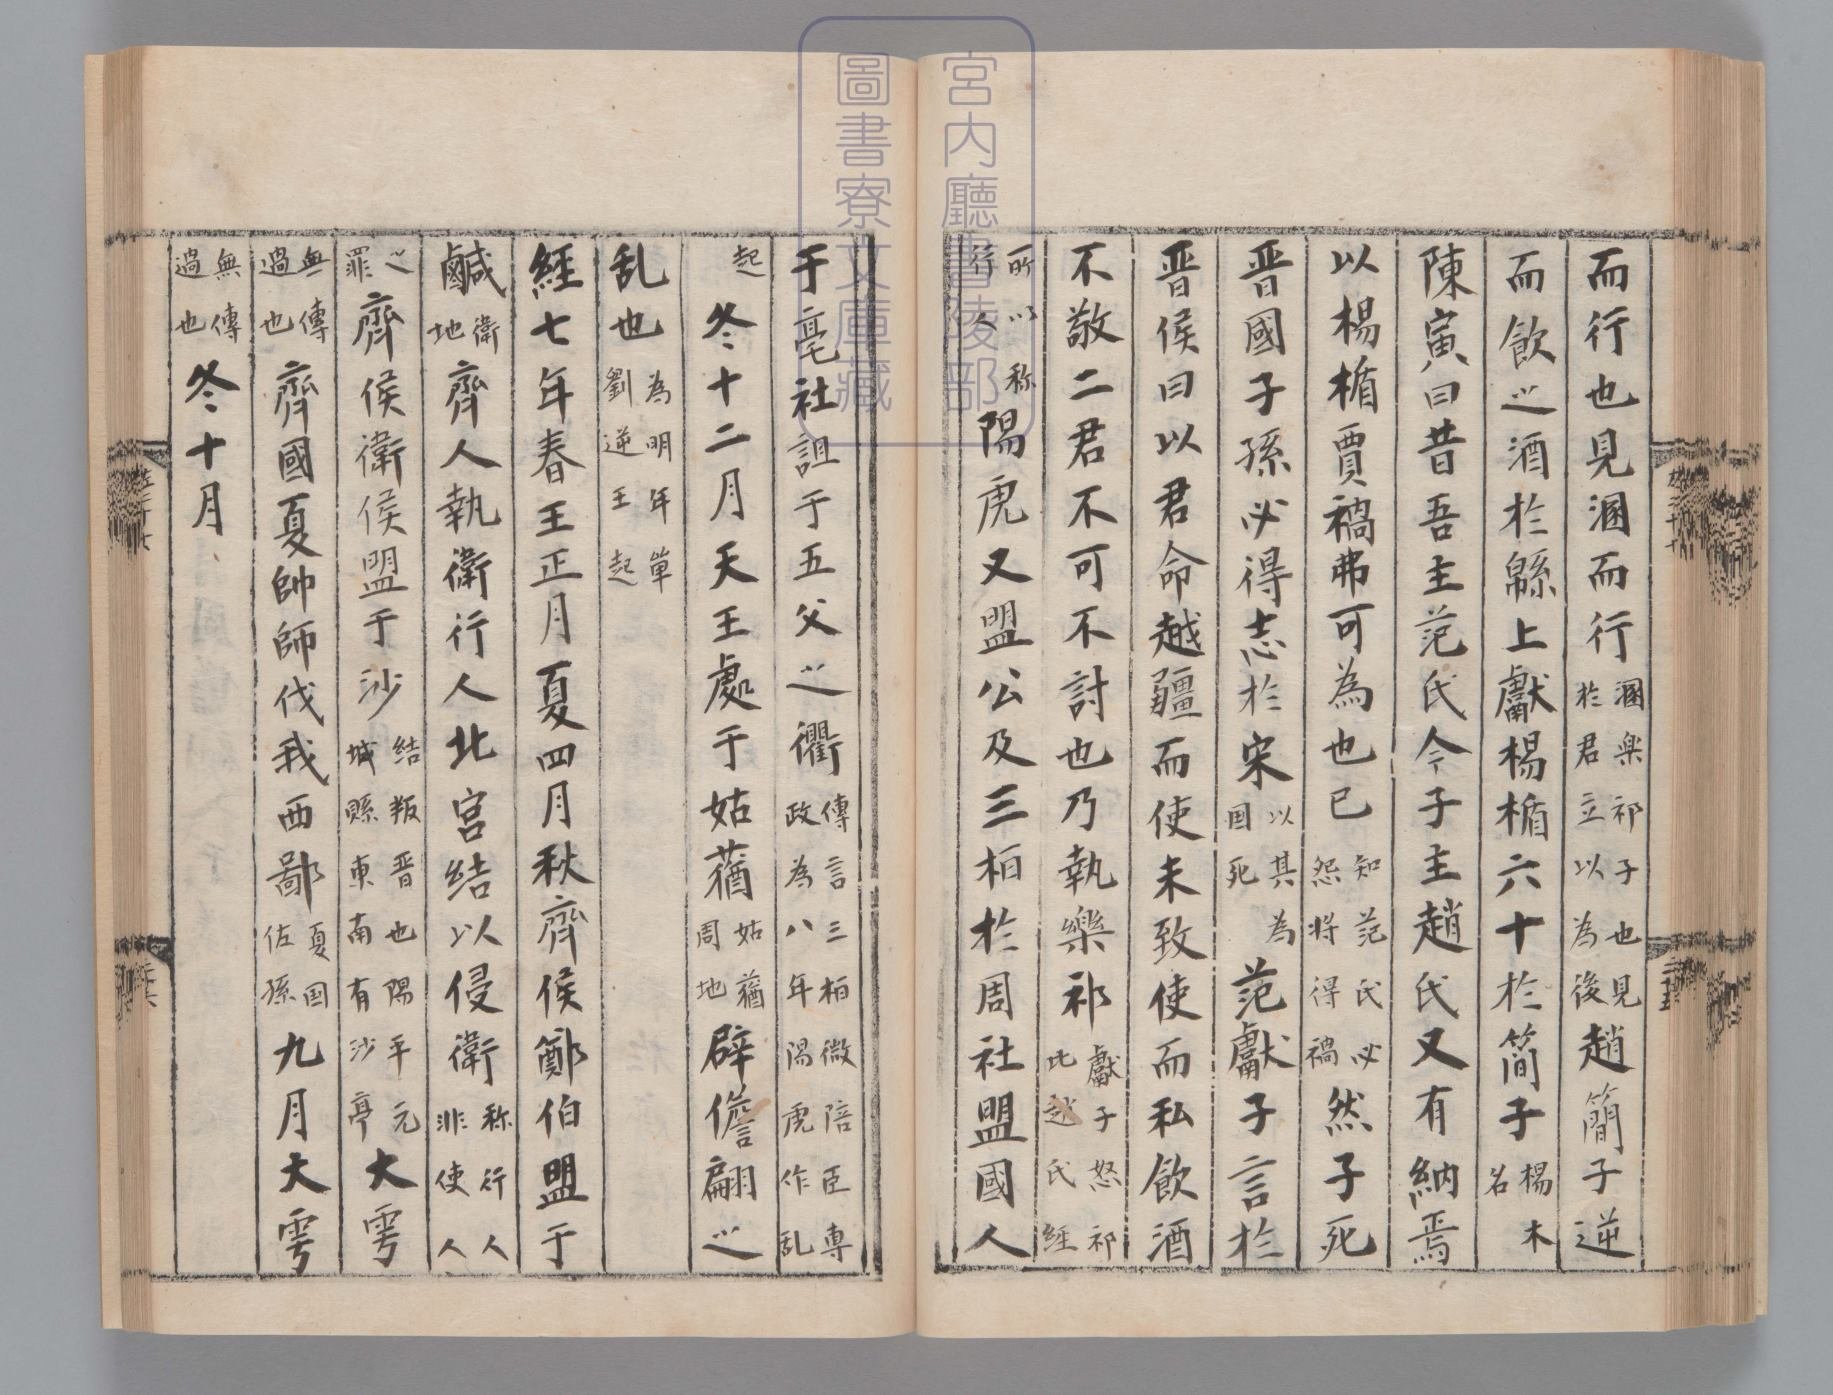 而行也見溷而行溷楽祁子也見於君立以為後趙簡子逆
而飮之酒於緜上獻楊楯六十於簡子楊木名
陳寅曰昔吾主范氏今子主趙氏又有納焉
以楊楯賈禍弗可為也已知范氏必怨将得禍然子死
晋國子孫必得志於宋以其為国死范獻子言於
晋侯曰以君命越疆而使未致使而私飮酒
不敬二君不可不討也乃執樂祁獻子怒祁比趙氏経
所以称行人陽虎又盟公及三桓於周社盟國人
于亳社詛于五父之衢傳言三桓微陪臣専政為八年陽虎作乱
起冬十二月天王處于姑蕕姑蕕周地辟儋翩之
乱也為明年單劉逆王起
經七年春王正月夏四月秋齊侯鄭伯盟于
鹹衛地齊人執衛行人北宮結以侵衛称行人非使人
之罪齊侯衛侯盟于沙結叛晋也陽平元城縣東南有沙亭大雩
無傳過也齊國夏帥師伐我西鄙夏国佐孫九月大雩
無傳過也冬十月
宮内廳書陵部
圖書寮文庫藏